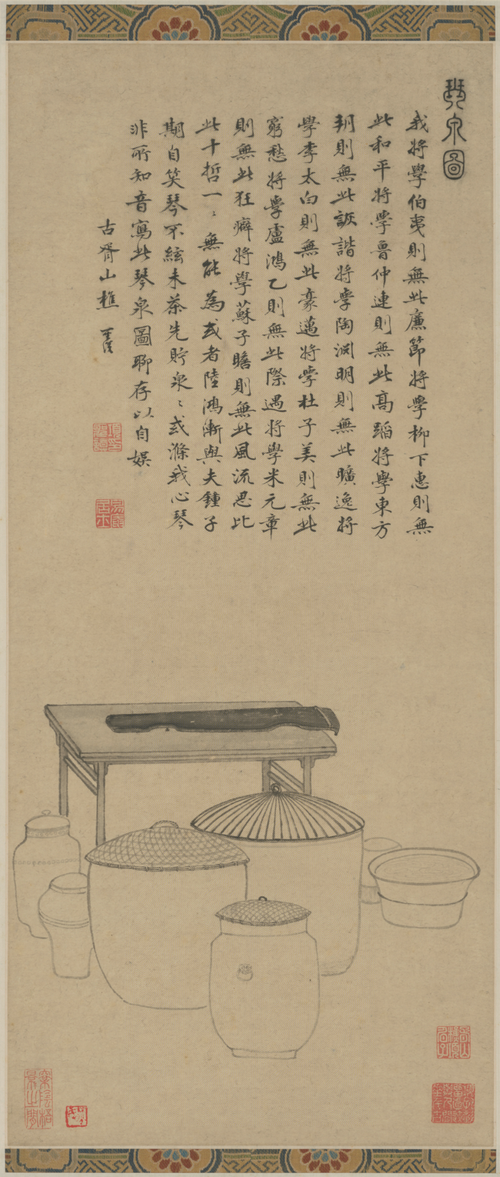 琴泉圖
我將學伯夷則無此廉節將學柳下惠則無
此和平將學魯仲連則無此高蹈將學東方
朔則無此詼諧將學陶渊明則無此曠逸將
學李太白則無此豪邁將學杜子美則無此
窮愁將學盧鴻乙則無此際遇將學米元章
則無此狂癖將學蘇子瞻則無此風流思比
此十哲一〻無能為或者陸鴻漸與夫鍾子
期自笑琴不絃未茶先貯泉〻或滌我心琴
非所知音寫此琴泉圖聊存以自娛
古胥山樵